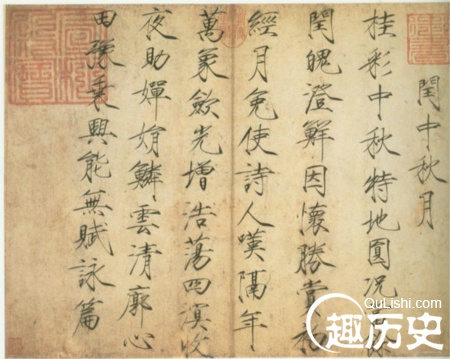 閏中秋月
桂彩中秋特地圓況當
閏魄澄鮮因懷勝賞初
經月免使詩人嘆隔年
萬象斂光增浩蕩四溟收
夜助嬋娟鱗雲清廓心
田豫乘興能無賦詠篇
QuLiShi.com
趣历史